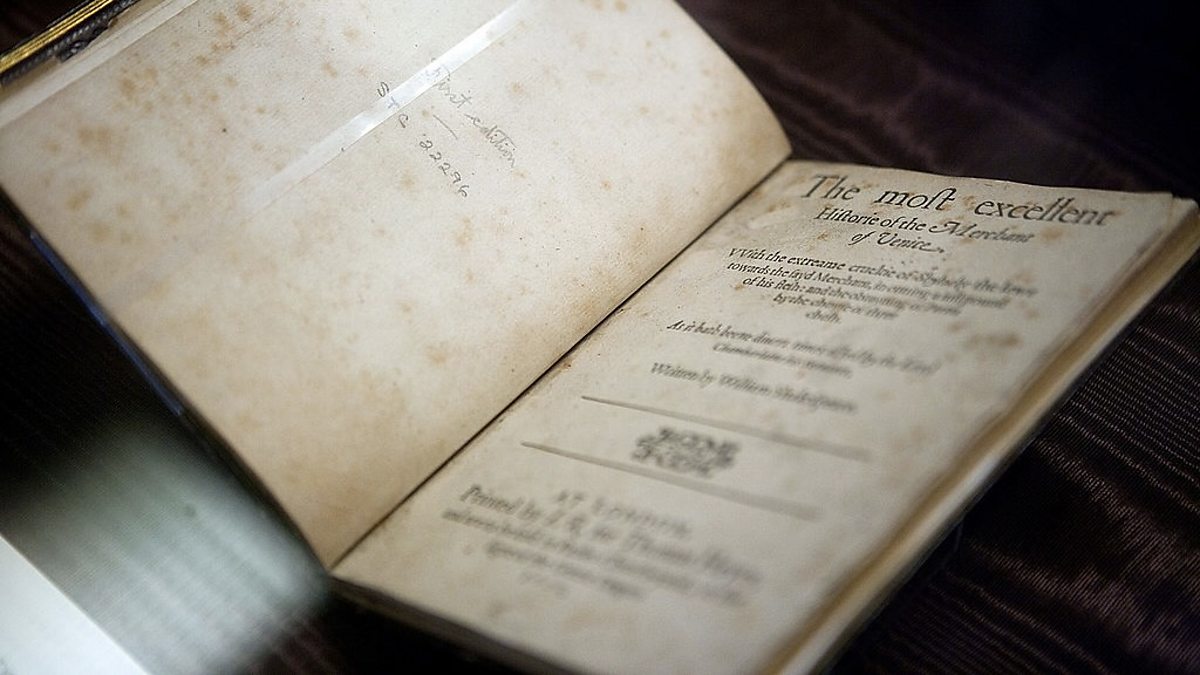 First edition
STC 22296
The moſt excellent
Hiſtorie of the Merchant
of Venice.
VVith the extreame crueltie of Shylocke the Iewe
towards the ſayd Merchant, in cutting a iuſt pound
of his fleſh: and the obtayning of Portia
by the choyse of three
cheſts.
As it hath beene diuers times acted by the Lord
Chamberlaine his Seruants.
Written by William Shakeſpeare.
AT LONDON,
Printed by I. R. for Thomas Heyes,